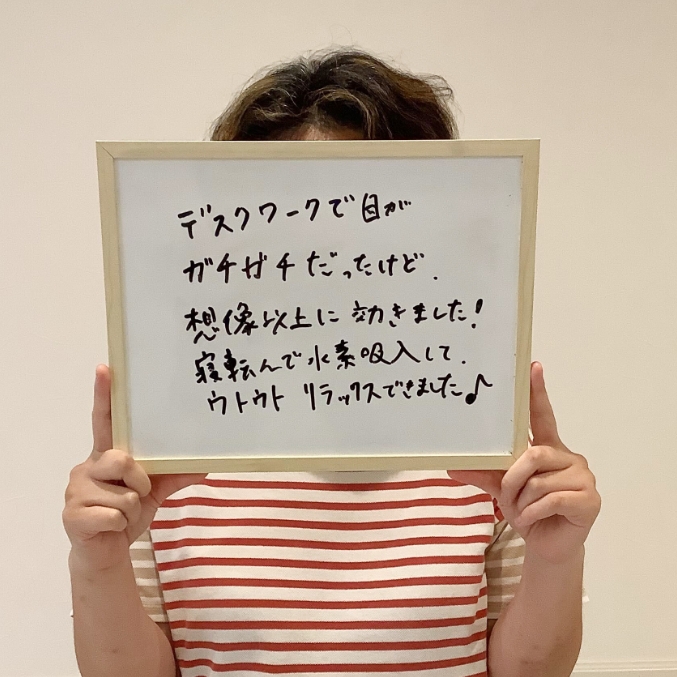 デスクワークで目が
ガチガチだったけど、
想像以上に効きました!
寝転んで水素吸入して、
ウトウトリラックスできました♪